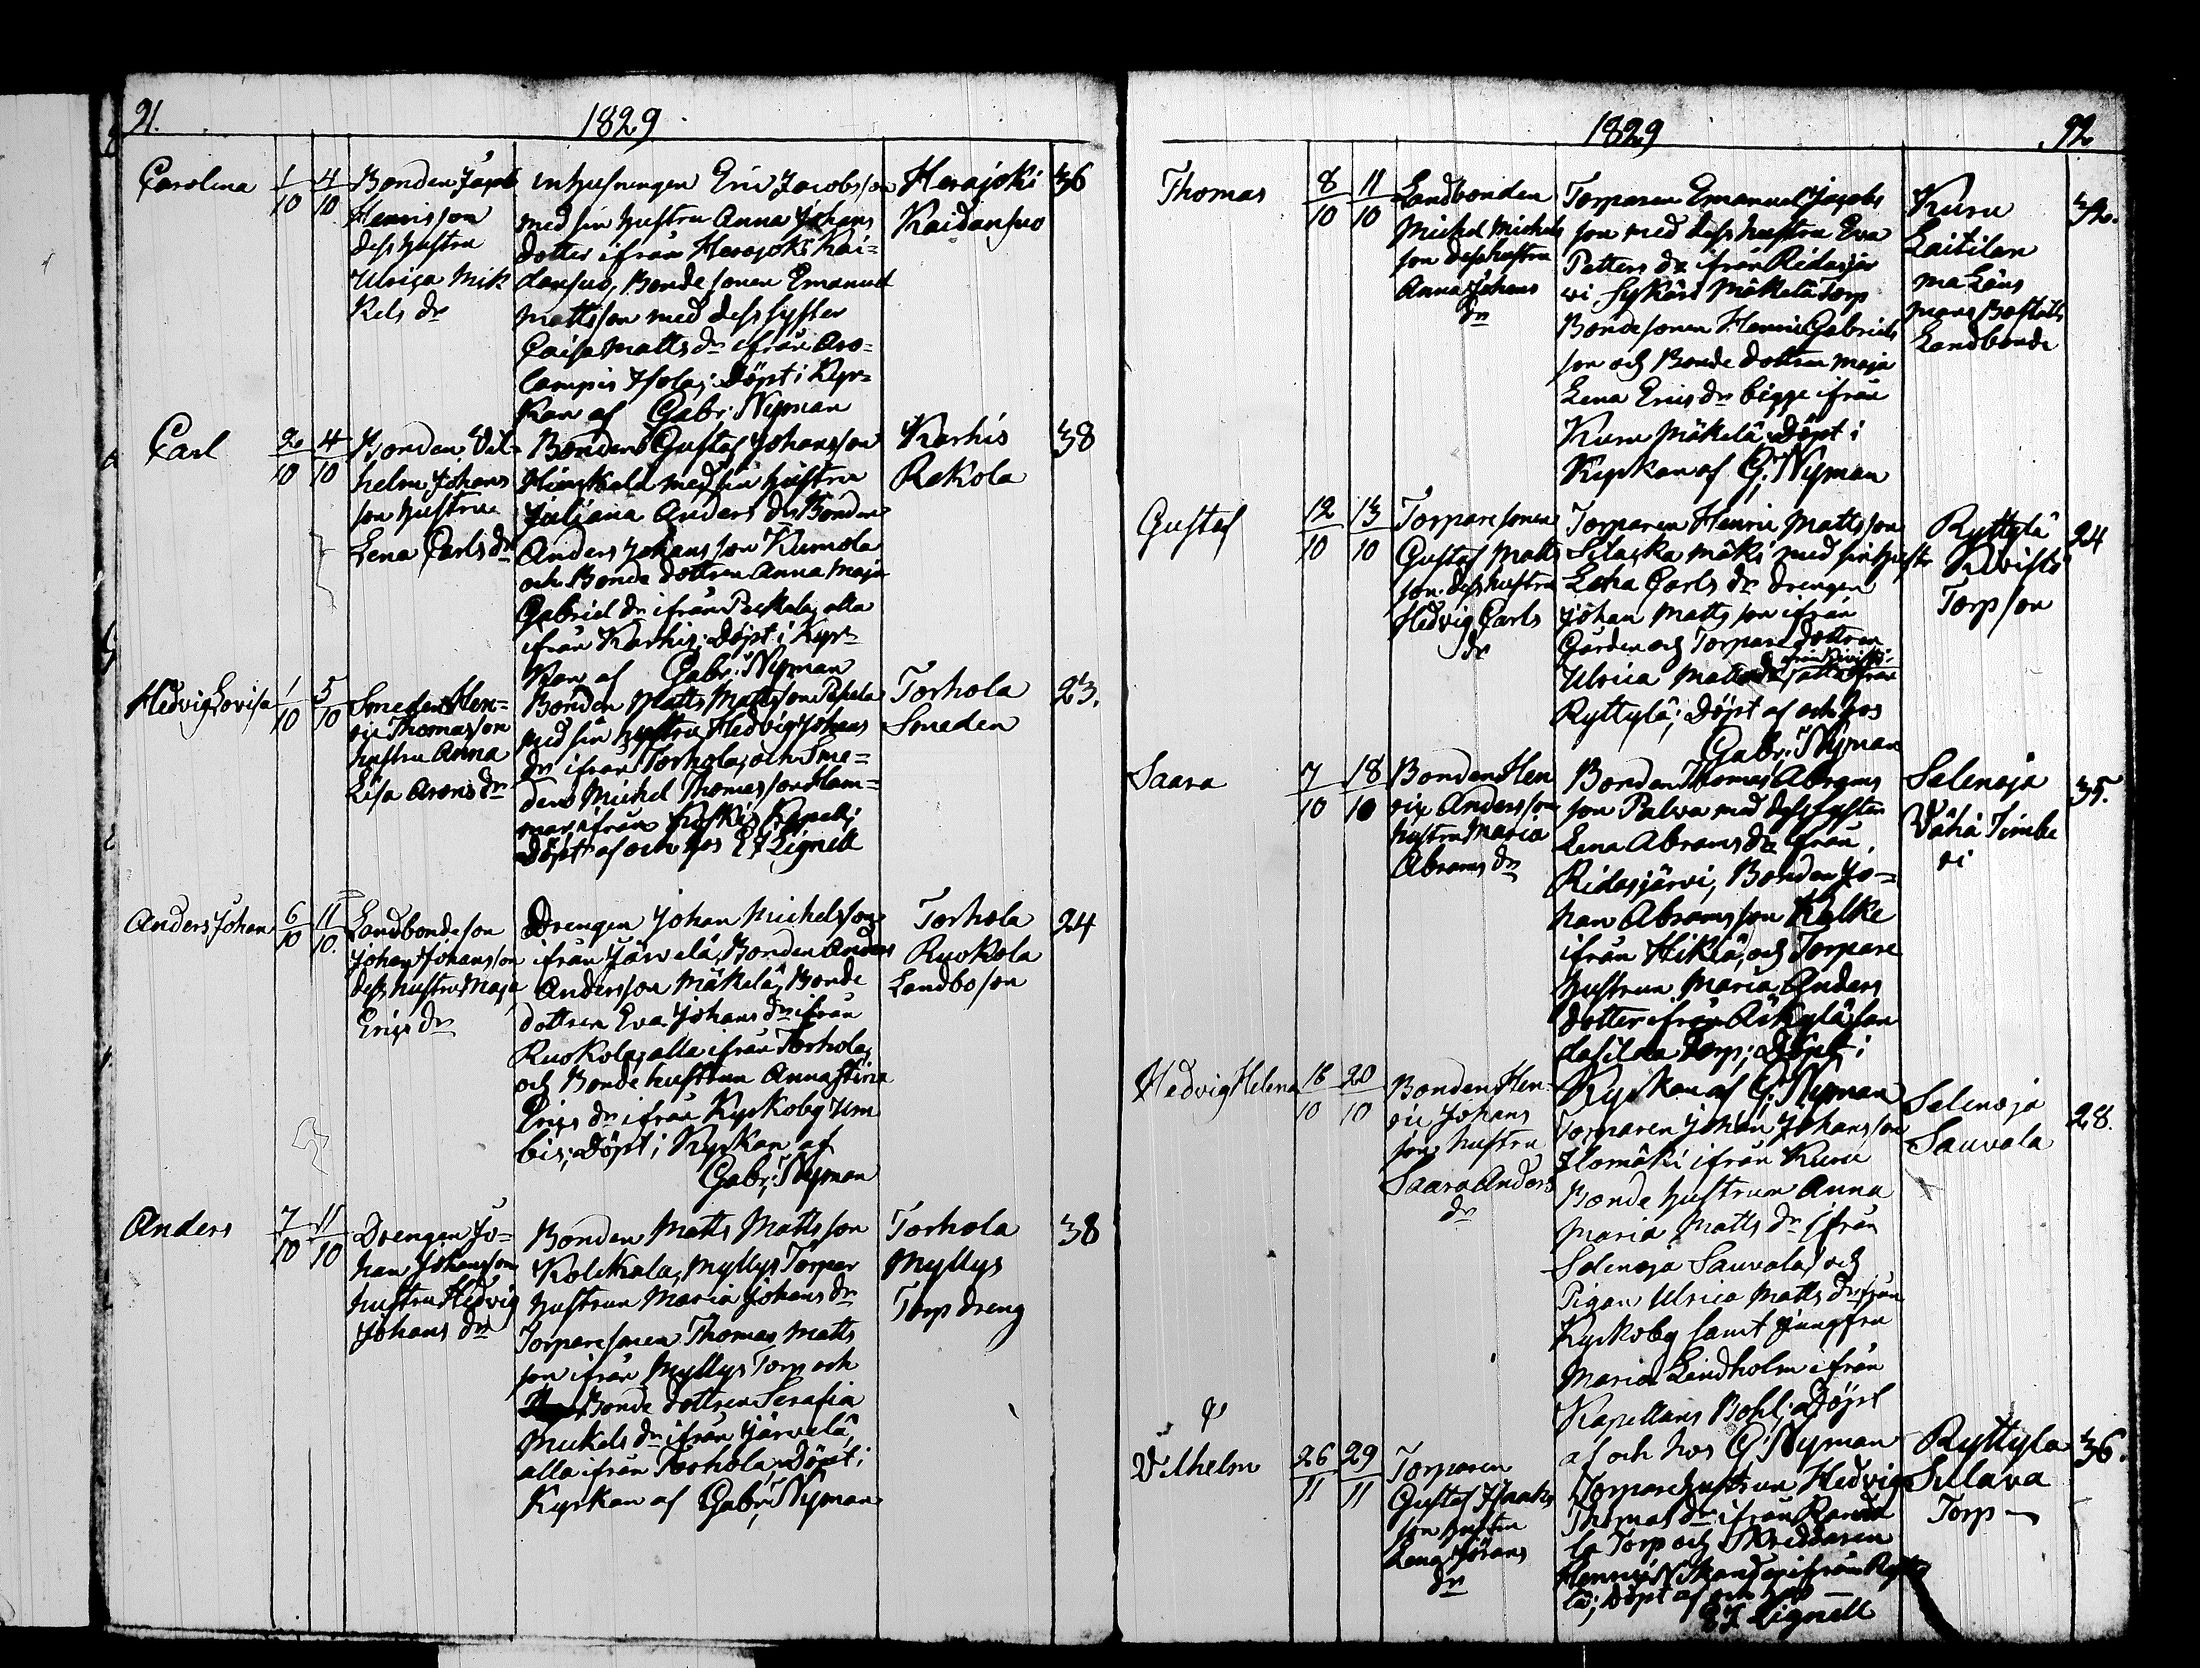 91.
1829
Carolina
1/10
4/10
Bonden Jacob
Henrisson
dess hustru
Ulrica Mik
kels dr
inhysningen Eric Jacobsson
med sin hustru Anna Johans
dotter ifrån Herajoki Kai=
dansuo, Bondesonen Emanuel
Mattsson med dess syster
Caisa Matts dr ifrån Aro=
lampis Isola; Döpt i Kyr=
kan af Gabr: Nyman
Herajoki
Kaidansuo
36
Carl
2/10
4/10
Bonden Vil=
helm Johans
son hustru
Lena Carls dr
Bonden Gustaf Johansson
med sin hustru
Juliana Anders dr Bonden
Anders Johansson Kumola
och Bonde dottren Anna Maja
Gabriel dr ifrån Peckala, alla
ifrån Karhis; Döpt i Kyr=
kan af Gabr: Nyman
Karhis
Rekola
38
Hedvig Lovisa
1/10
5/10
Smeden Hen=
ric Thomasson
hustru Anna
Lisa Arons dr
Bonden Matts Mattsson
med sin hustru Hedvig Johans
dr ifrån Torhola, och Sme=
dens Michel Thomasson Ham=
mar ifrån Kapell;
Döpt af och hos E J Lignell
Torhola
Smeden
23.
Anders Johan
6/10
11/10
Landbondeson
Johan Johansson
dess hustru Maja
Erics dr
Drengen Johan Michelsson
ifrån Järvelä, Bonden Anders
Andersson Mäkelä, Bonde
dottren Eva Johans dr ifrån
Ruokola, alla ifrån Torhola,
och Bonde hustrun Anna Stina
Erics dr ifrån Kyrkoby Um
bis; Döpt i Kyrkan af
Gabr: Nyman
Torhola
Ruokola
Landboson
24
Anders
7/10
11/10
Drengen Jo=
han Johansson
hustru Hedvig
Johans dr
Bonden Matts Mattsson
Kolkkala, Myllys Torpar
hustrun Maria Johans dr
Torparesonen Thomas Matts
son ifrån Myllys Torp och
Bonde dottren Serafia
Mickels dr ifrån Järvelä,
alla ifrån Torhola, Döpt i
Kyrkan af Gabr: Nyman
Torhola
Myllys
Torp dreng
38
1829
92
Thomas
8/10
11/10
Landbonden
Michel Michels
son dess hustru
Anna Johans
dr
Torparen Emanuel Jacobs
son med dess hustru Eva
Petters dr ifrån Ridasjär
vi, Sykäri Mäkelä Torp
Bondesonen Henric Gabriels
son och Bonde dottren Maja
Lena Erics dr bägge ifrån
Kuru Mäkelä; Döpt i
Kyrkan af G: Nyman
Kuru
Laitilan
ma Läns
mans Boställs
Landbonde
32.
Gustaf
12/10
13/10
Torparesonen
Gustaf Matts
son dess hustru
Hedvig Carls
dr
Torparen Henric Mattsson
mäki med sin hustr
Lena Carls dr drengen
Johan Mattsson ifrån
Gården och Torpare dottren
Ulrica Matts dr
alla ifrån
Ryttylä; Döpt af och hos
Gabr: Nyman
Ryttylä
Torp son
24
Saara
7/10
18/10
Bonden Hen
ric Andersson
hustru Maria
Abrams dr
Bonden Thomas Abrams
son Palva med dess syster
Lena Abrams dr ifrån
Ridasjärvi, Bonden Jo=
han Abramsson Kalke
ifrån Hikiä, och Torpare
hustrun Maria Anders
dotter ifrån
Torp; Döpt i
Kyrkan af G: Nyman
Selenoja
Vähä Timbe
ri
35.
Hedvig Helena
16/10
20/10
Bonden Hen=
ric Johans
son hustru
Saara Anders
dr
Torparen Johan Johansson
Ilomäki ifrån Kuru
Bonde hustrun Anna
Maria Matts dr ifrån
Selenoja Sauvala, och
Pigan Ulrica Matts dr ifrån
Kyrkoby samt jungfru
Maria Lindholm ifrån
Kapellans Bohl; Döpt
af och hos G: Nyman
Selenoja
Sauvala
28.
Vilhelm
26/11
29/11
Torparen
Gustaf Isaaks
son hustru
Lena Jörans
dr
Torparehustrun Hedvig
Thomas dr ifrån
la Torp och Skreddaren
Henric ifrån Rytty
lä; Döpt af och hos
E J Lignell
Ryttyla
Sulava
Torp
36.